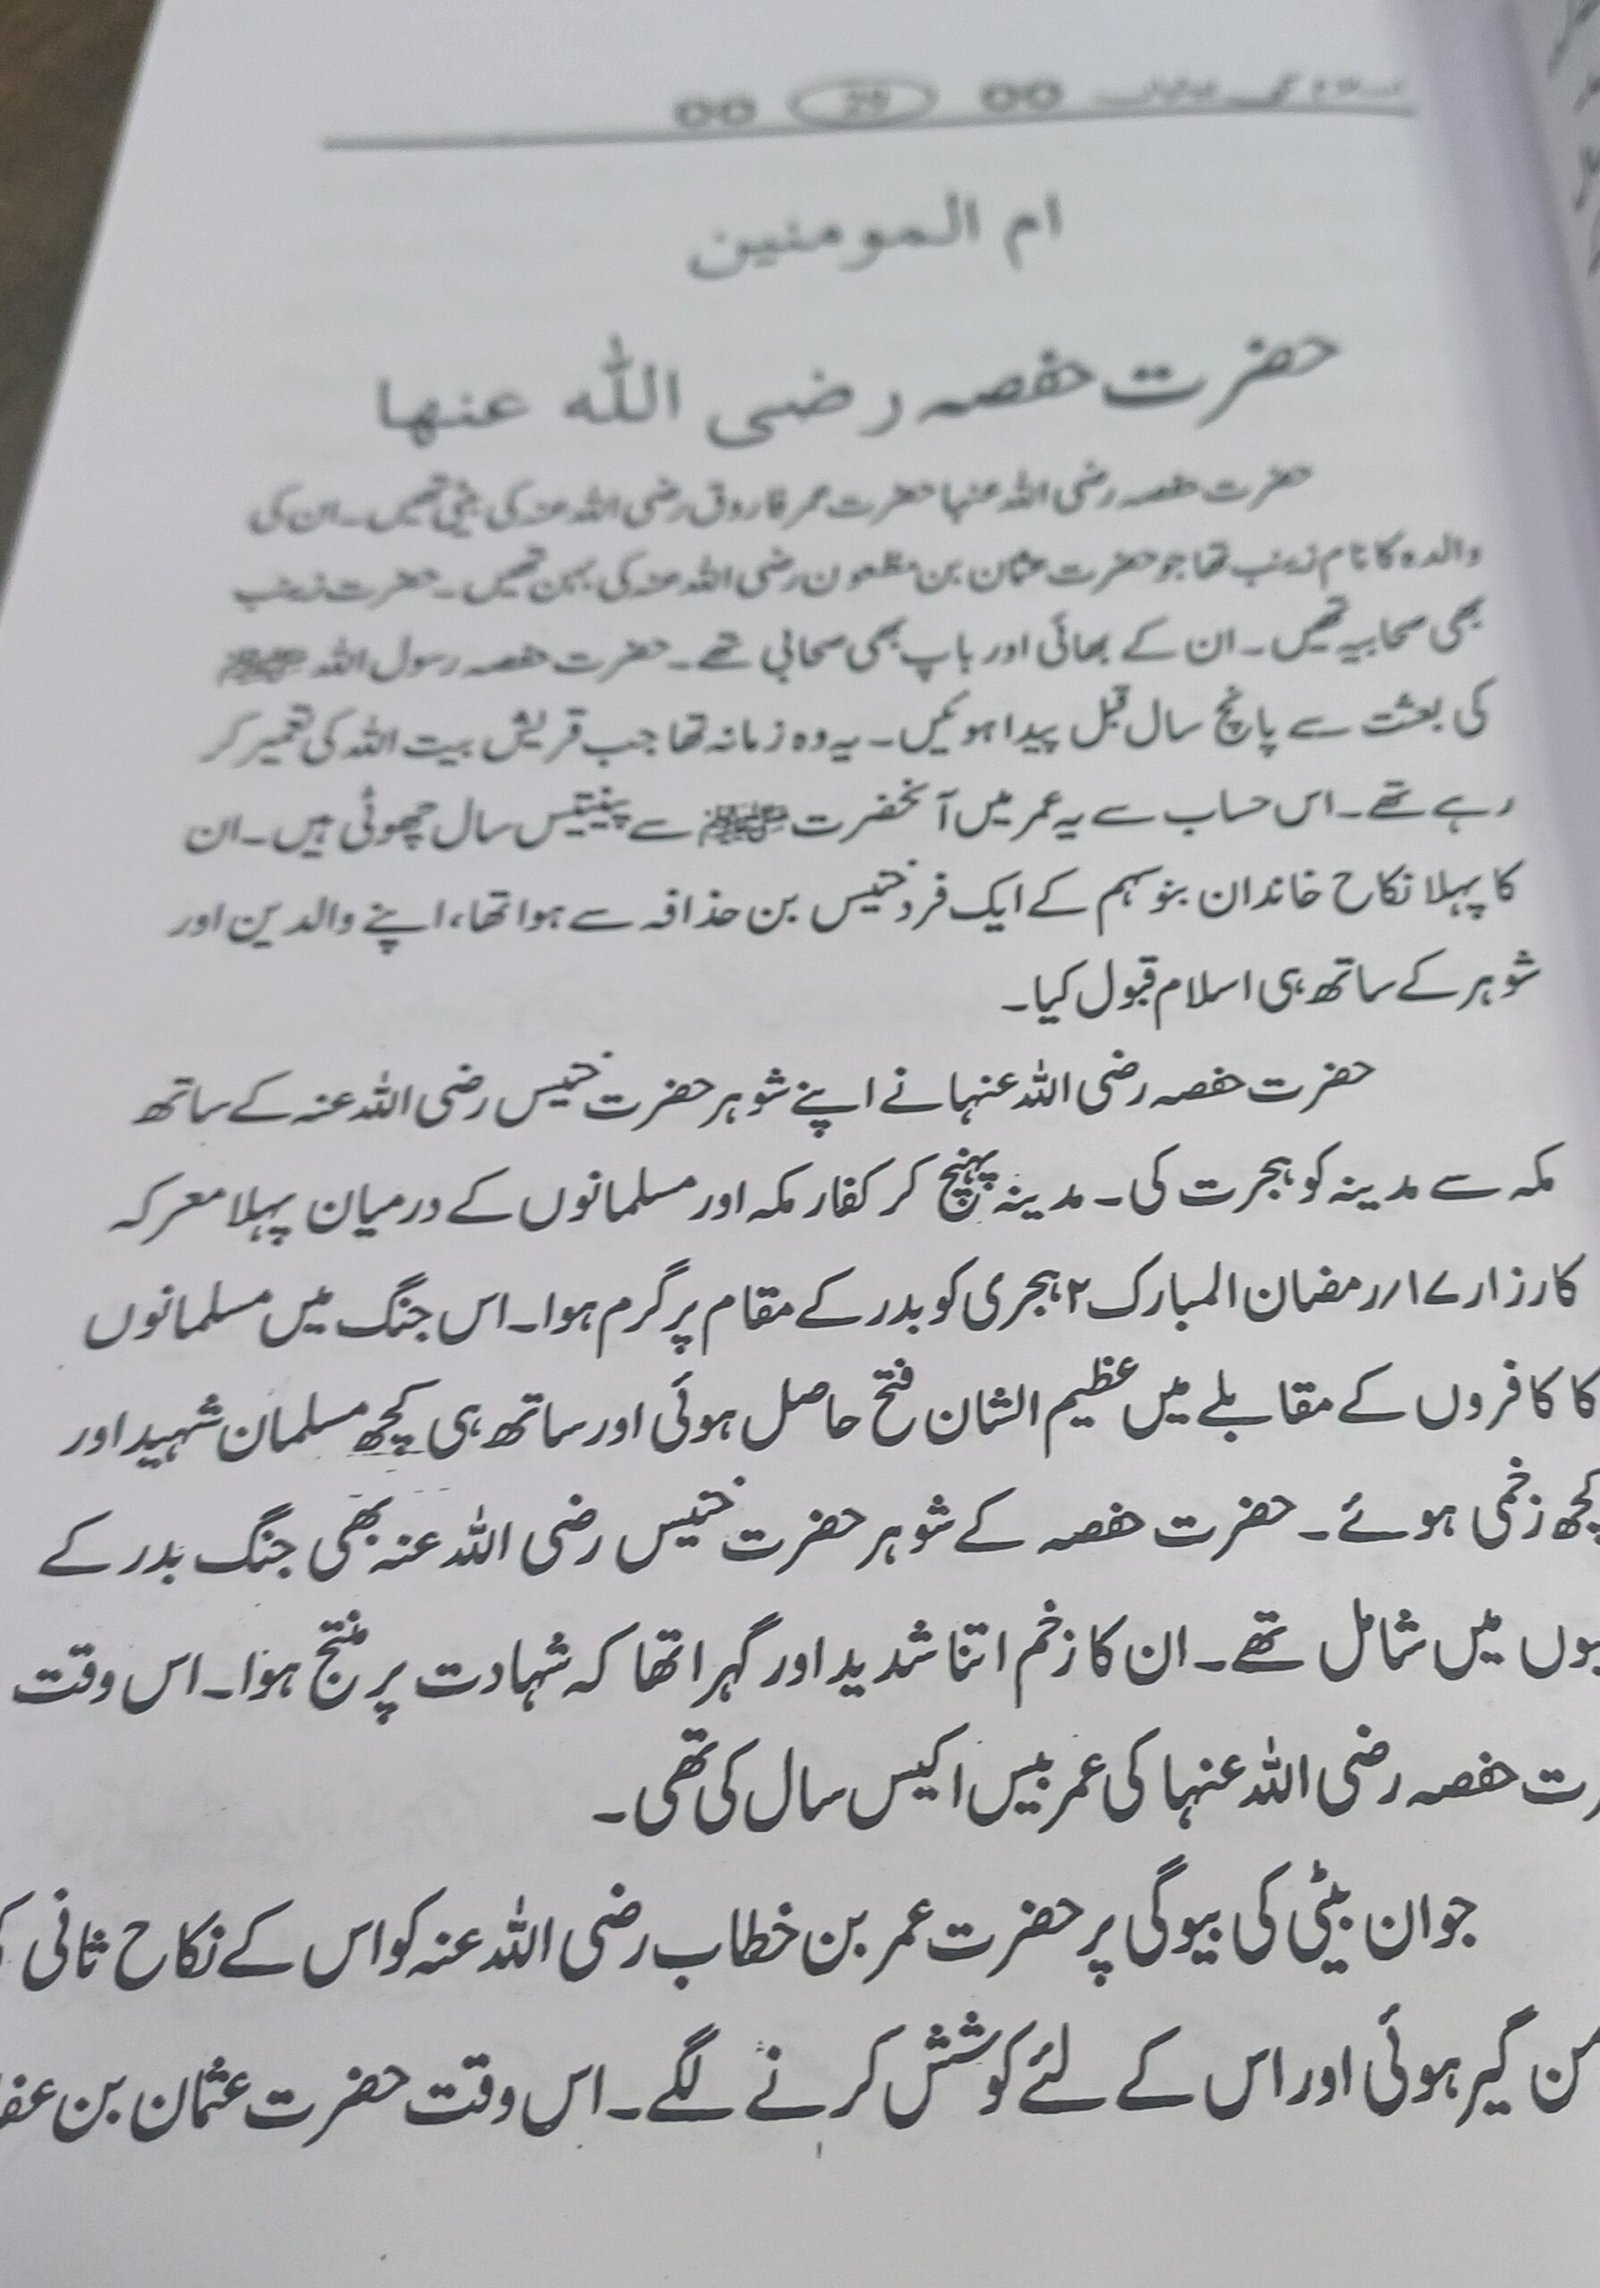 29
ام المومنین
حضرت حفصہ رضی اللہ عنہا
حضرت حفصہ رضی اللہ عنہا حضرت عمر فاروق رضی اللہ عنہ کی بیٹی تھیں۔ ان کی
والدہ کا نام زینب تھا جو حضرت عثمان بن مظعون رضی اللہ عنہ کی بہن تھیں۔ حضرت زینب
بھی صحابیہ تھیں۔ ان کے بھائی اور باپ بھی صحابی تھے۔ حضرت حفصہ رسول اللہ ﷺ
کی بعثت سے پانچ سال قبل پیدا ہوئیں۔ یہ وہ زمانہ تھا جب قریش بیت اللہ کی تعمیر کر
رہے تھے۔ اس حساب سے یہ عمر میں آنحضرت ﷺ سے پینتیس سال چھوٹی ہیں۔ ان
کا پہلا نکاح خاندان بنو سہم کے ایک فرد خنیس بن حذافہ سے ہوا تھا، اپنے والدین اور
شوہر کے ساتھ ہی اسلام قبول کیا۔
حضرت حفصہ رضی اللہ عنہا نے اپنے شوہر حضرت خنیس رضی اللہ عنہ کے ساتھ
مکہ سے مدینہ کو ہجرت کی۔ مدینہ پہنچ کر کفار مکہ اور مسلمانوں کے درمیان پہلا معرکہ
کارزار ۱۷/رمضان المبارک ۲ ہجری کو بدر کے مقام پر گرم ہوا۔ اس جنگ میں مسلمانوں
کا کافروں کے مقابلے میں عظیم الشان فتح حاصل ہوئی اور ساتھ ہی کچھ مسلمان شہید اور
کچھ زخمی ہوئے۔ حضرت حفصہ کے شوہر حضرت خنیس رضی اللہ عنہ بھی جنگ بدر کے
میں شامل تھے۔ ان کا زخم اتنا شدید اور گہرا تھا کہ شہادت پر منتج ہوا۔ اس وقت
حفصہ رضی اللہ عنہا کی عمر بیس اکیس سال کی تھی۔
جوان بیٹی کی بیوگی پر حضرت عمر بن خطاب رضی اللہ عنہ کو اس کے نکاح ثانی
گیر ہوئی اور اس کے لئے کوشش کرنے لگے۔ اس وقت حضرت عثمان بن